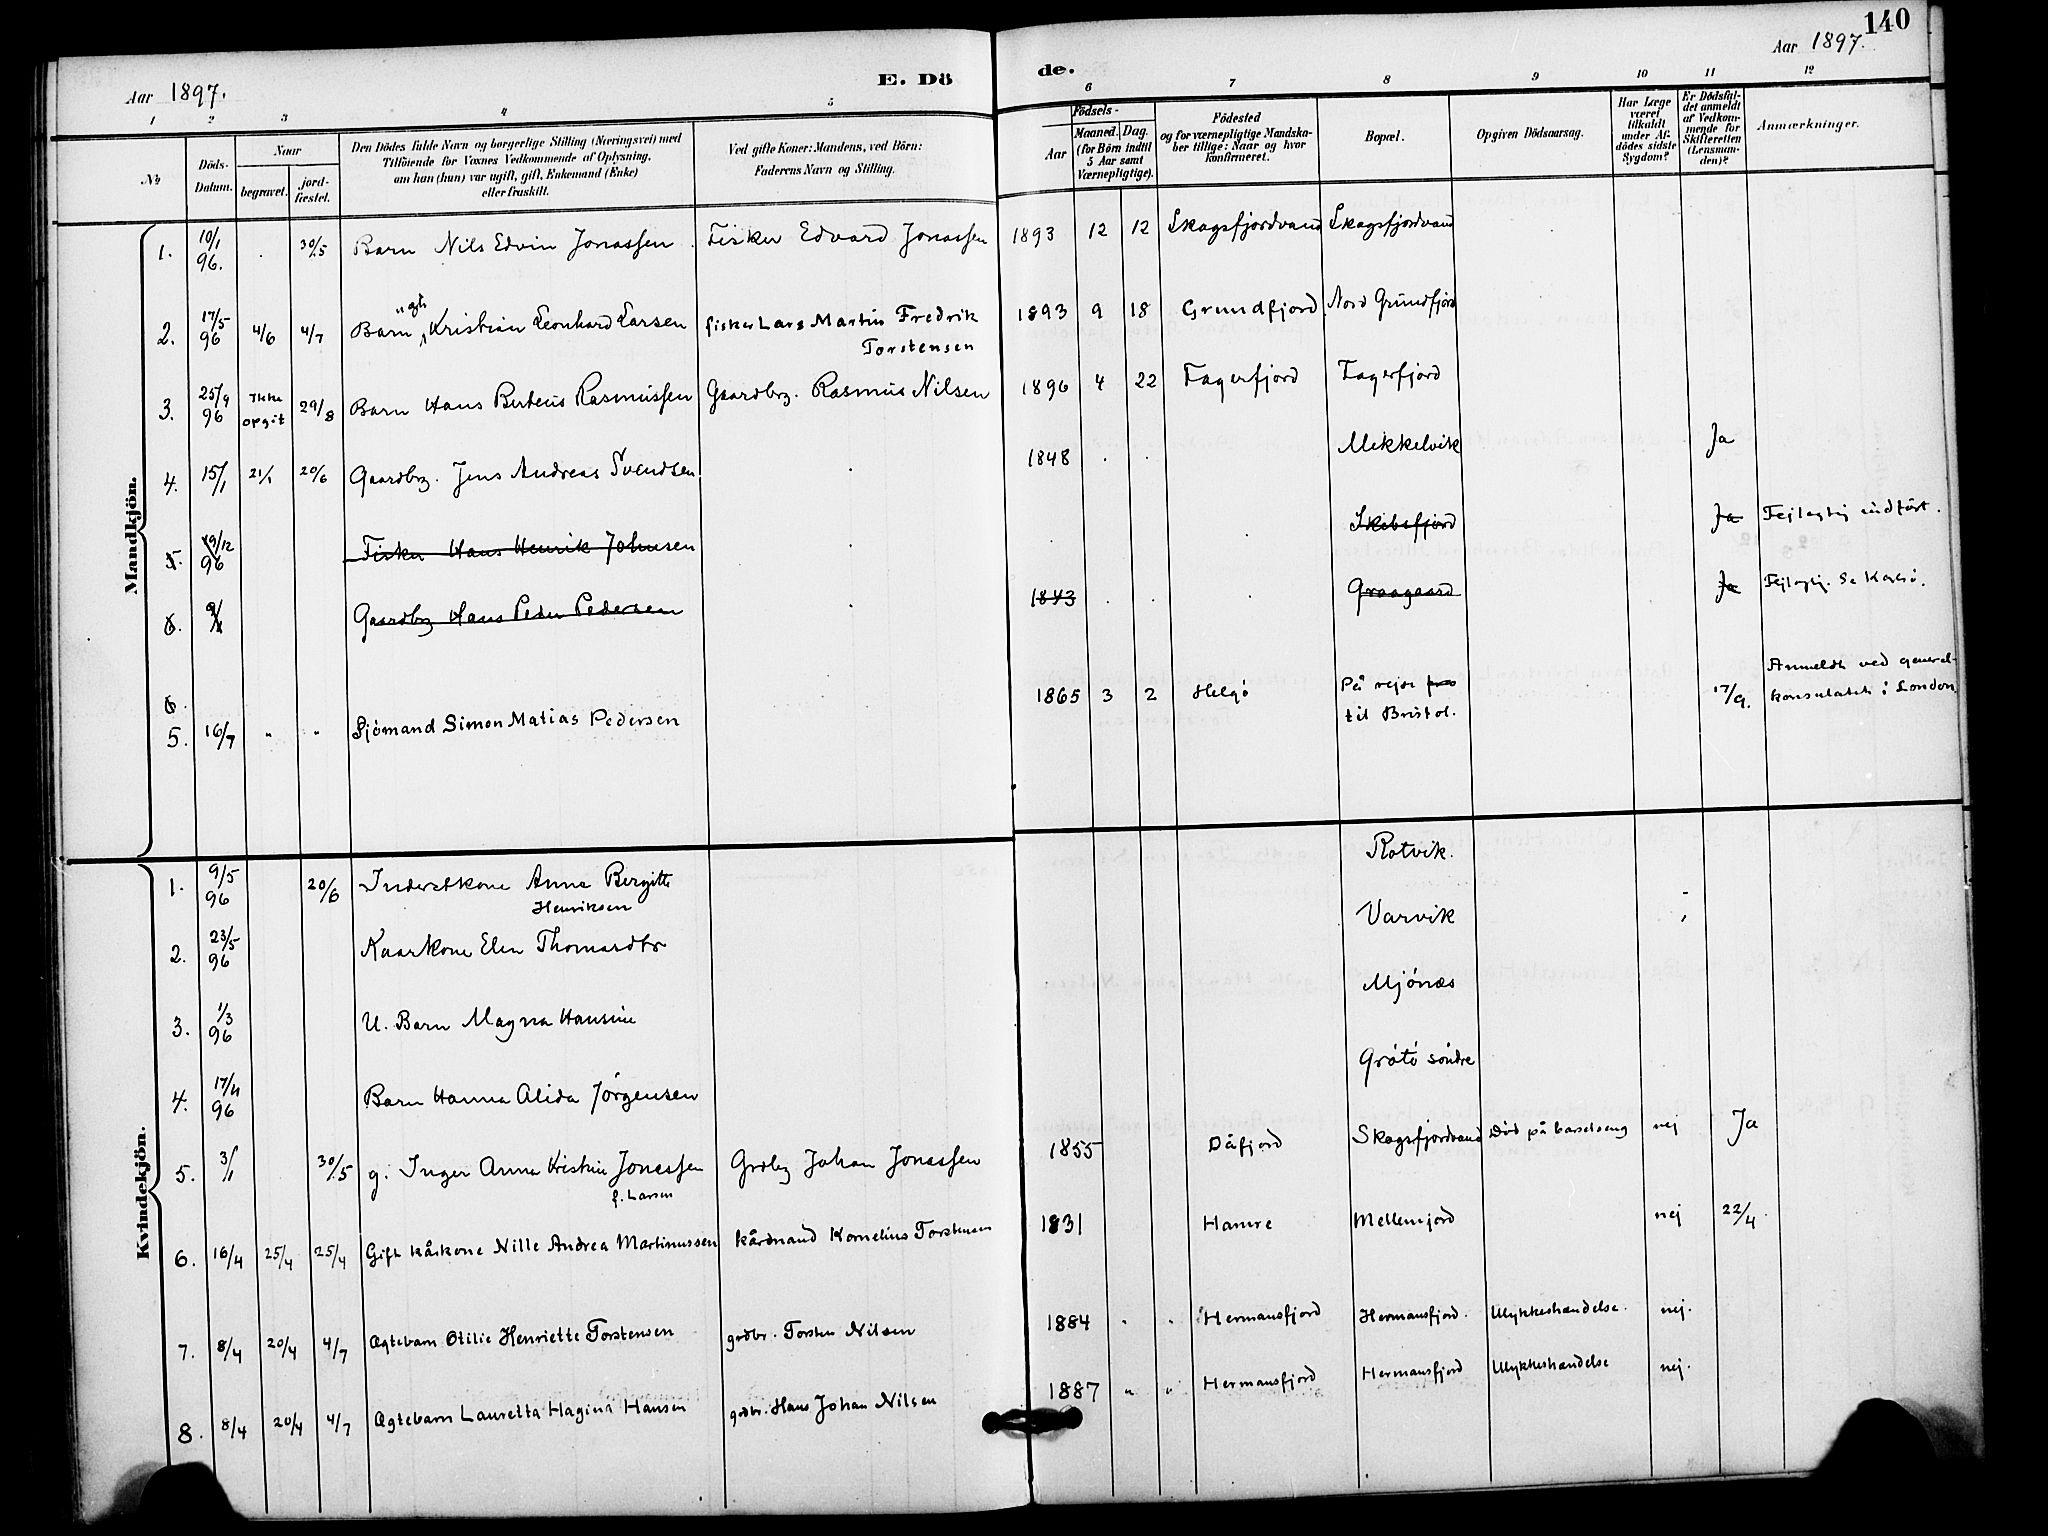 140
Aar 1897.
E. Dö
de.
Aar 1897.
1 2 3 4 5 6 7 8 9 10 11 12
No
Döds-
Datum.
Naar
begravet.
jord-
fæstet.
Den Dödes fulde Navn og borgerlige Stilling (Næringsvei) med
Tilföiende for Voxnes Vedkommende af Oplysning,
om han (hun) var ugift, gift, Enkemand (Enke)
eller fraskilt.
Ved gifte Koner: Mandens, ved Börn:
Faderens Navn og Stilling.
Födsels-
Aar
Maaned. Dag.
(for Börn indtil
5 Aar samt
Værnepligtige).
Födested
og for værnepligtige Mandska-
ber tillige: Naar og hvor
konfirmeret.
Bopæl.
Opgiven Dödsaarsag.
Har Læge
været
tilkaldt
under Af-
dödes sidste
Sygdom?
Er Dödsfal-
det anmeldt
af Vedkom-
mende for
Skifteretten
(Lensman-
den)?
Anmærkninger.
Mandkjön.
1. 10/1 96. 30/5 Barn Nils Edvin Jonassen Fisker Edvard Jonassen 1893 12 12 Skogsfjordvand Skogsfjordvand
2. 17/5 96 4/6 4/7 Barn Kristian Leonhard Larsen fisker Lars Martin Fredrik
Torstensen 1893 9 18 Grundfjord Nord Grundfjord
3. 25/9 96 Ikke opgit 29/8 Barn Hans Berteus Rasmussen Gaardbrg. Rasmus Nilsen 1896 4 22 Fagerfjord Fagerfjord
4. 15/1 21/1 20/6 Gaardbrg. Jens Andreas Svendsen 1848 Mikkelvik Ja
5. 19/12 96 Fisker Hans Henrik Johnsen Skibsfjord Ja Fejlagtig indført.
6. 9/1 Gaardbrg Hans Peder Pedersen 1843 Graagaard Ja Fejlagtig. Se Karlsø.
6.
5. 16/7 " " Sjømand Simon Matias Pedersen 1865 3 2 Helgø På rejse fra
til Bristol. 17/9. Anmeldt ved general-
konsulatet i London
Kvindekjön.
1. 9/5 96 20/6 Inderstkone Anna Bergitte
Henriksen Rotvik.
2. 23/5 96 Kaarkone Elen Thomasdtr Varvik
3. 1/3 96 U. Barn Magna Hansine Mjønæs
4. 17/11 96 Barn Hanna Alida Jørgensen Grøtø søndre
5. 3/1 30/5 g. Inger Anna Kristine Jonassen
f. Larsen Grdbrg Johan Jonassen 1855 Dåfjord Skogsfjordvand Død på barselseng nej Ja
6. 16/4 25/4 25/4 Gift kårkone Nille Andrea Martinussen kårmand Kornelius Torstensen 1831 Hamre Mellemjord nej 22/4.
7. 8/4 20/4 4/7 Ægtebarn Otilie Henriette Torstensen grdbr. Torsten Nilsen 1884 " " Hermansfjord Hermansfjord. Ulykkeshændelse. nej.
8. 8/4 20/4 4/7 Ægtebarn Lauretta Hagina Hansen grdbr. Hans Johan Nilsen 1887 " " Hermansfjord Hermansfjord Ulykkeshændelse nej.